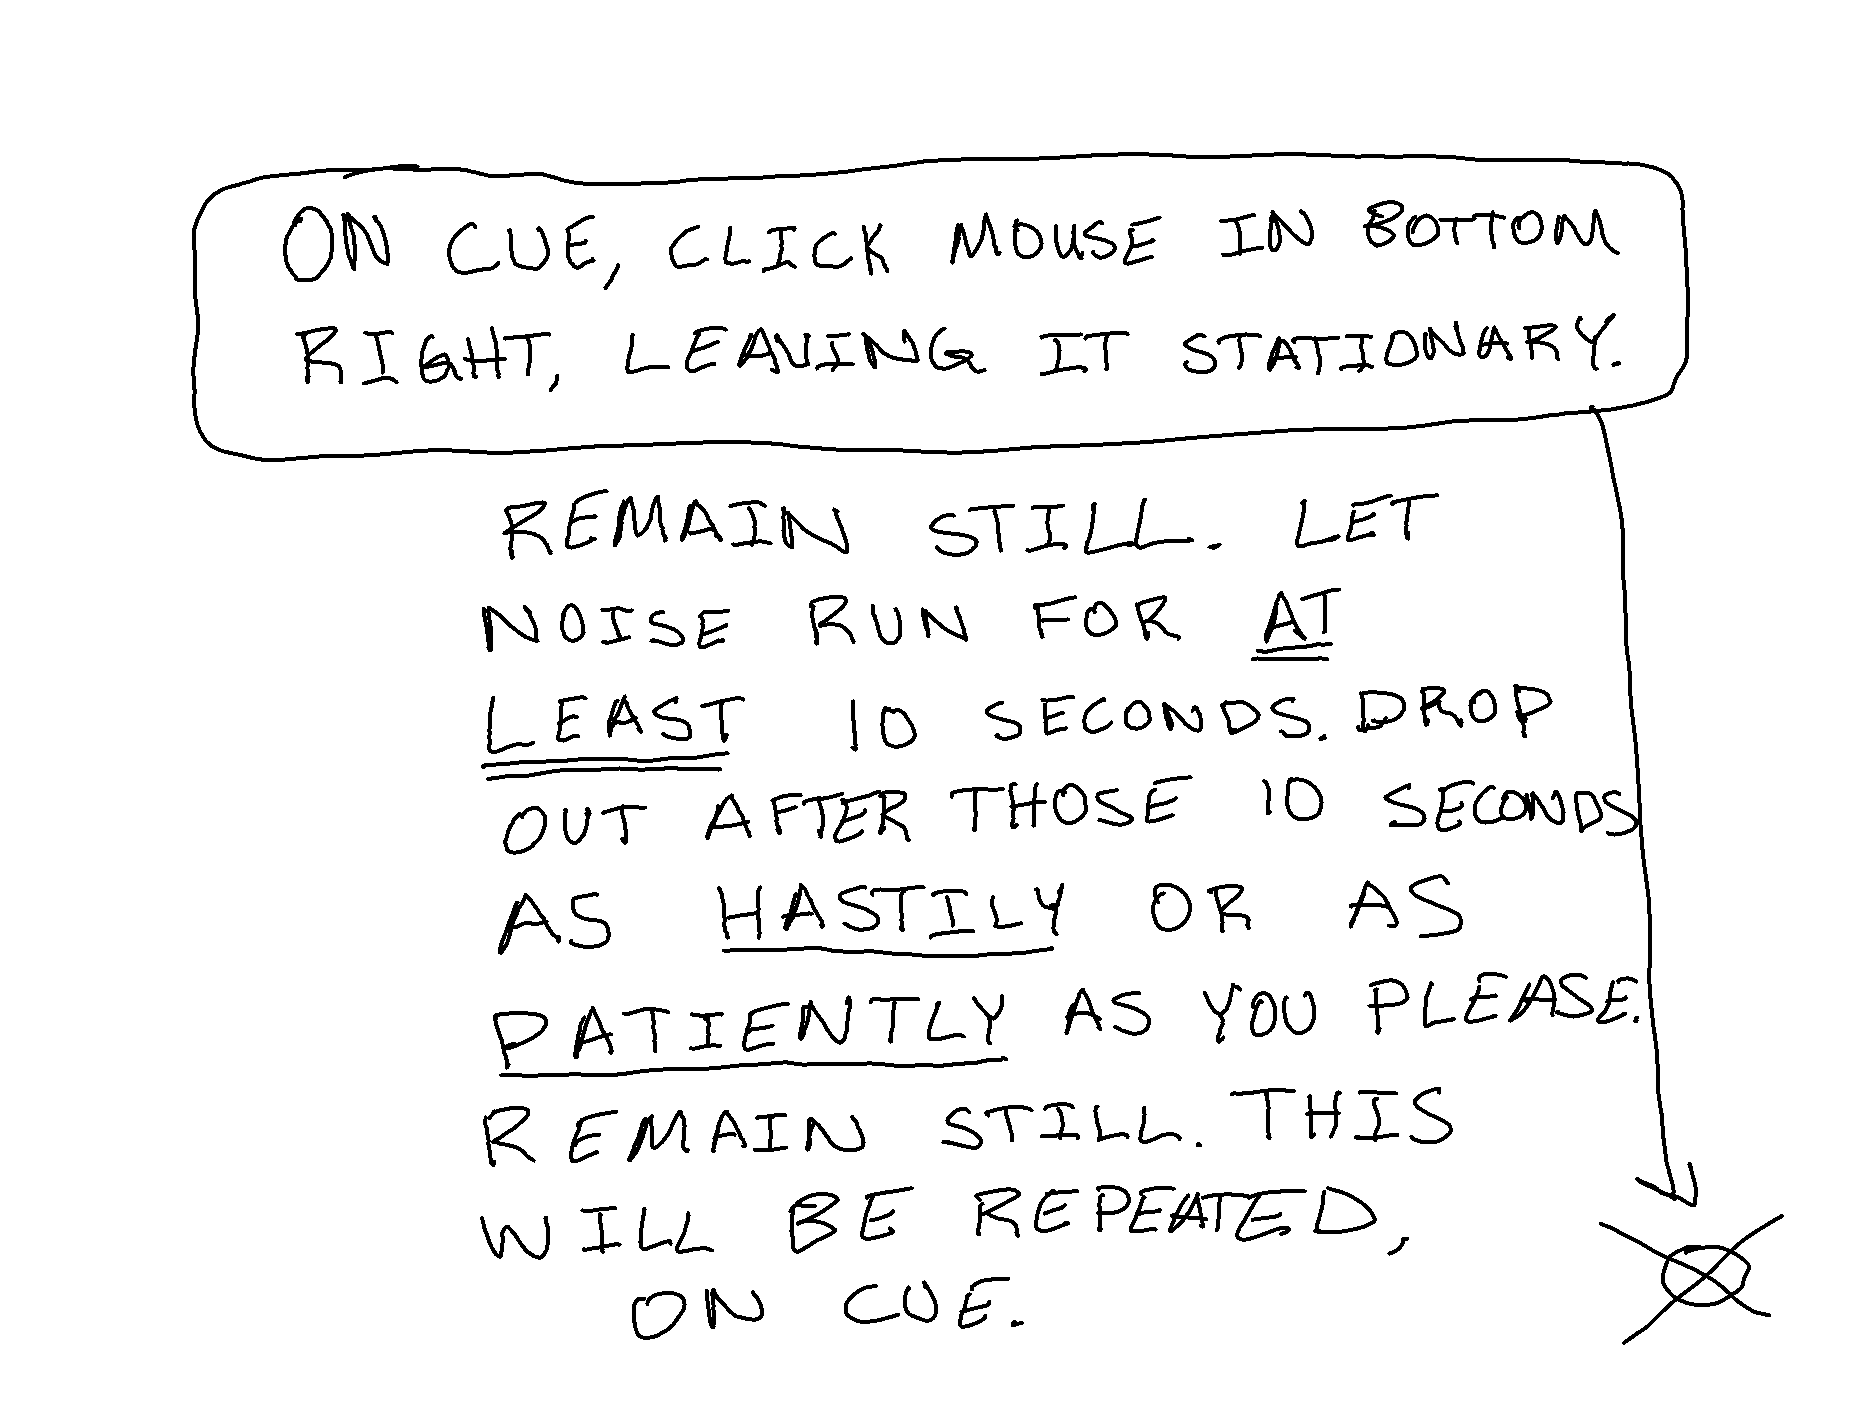 ON CUE, CLICK MOUSE IN BOTTOM
RIGHT, LEAVING IT STATIONARY.
REMAIN STILL. LET
NOISE RUN FOR AT
LEAST 10 SECONDS. DROP
OUT AFTER THOSE 10 SECONDS
AS HASTILY OR AS
PATIENTLY AS YOU PLEASE.
REMAIN STILL. THIS
WILL BE REPEATED,
ON CUE.